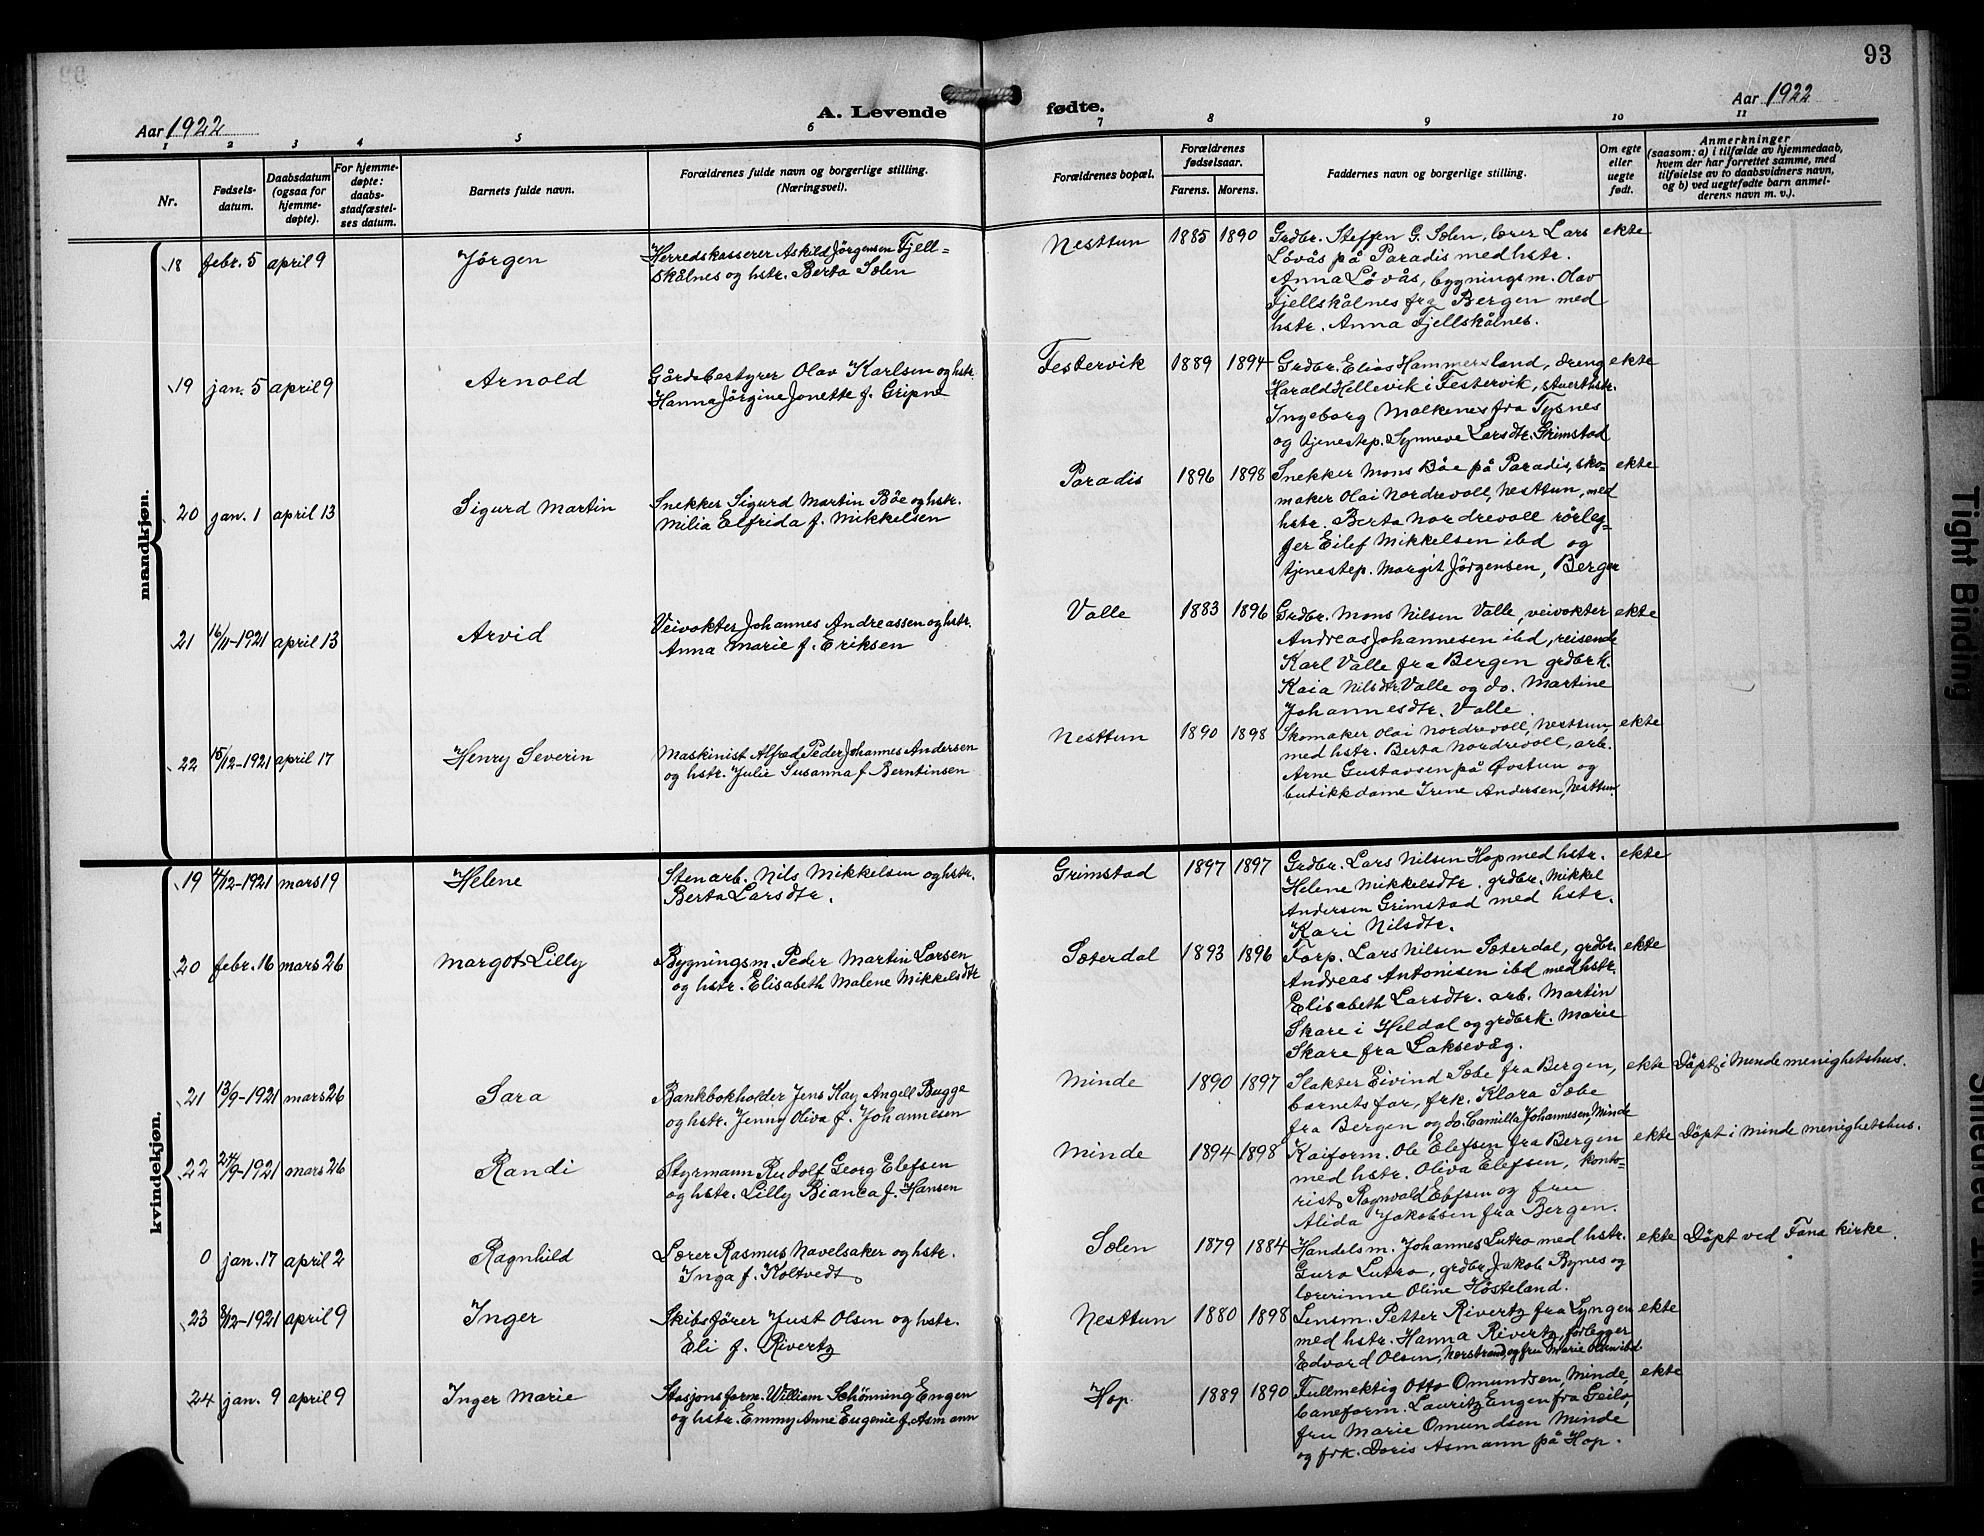 93
Aar 1922
A. Levende fødte.
Aar 1922
1 2 3 4 5 6 7 8 9 10 11
Nr.
Fødsels-
datum.
Daabsdatum
(ogsaa for
hjemme-
døpte).
For hjemme-
døpte:
daabs-
stadfæstel-
ses datum.
Barnets fulde navn.
Forældrenes fulde navn og borgerlige stilling.
(Næringsvei).
Forældrenes bopæl.
Forældrenes
fødselsaar.
Farens. Morens.
Faddernes navn og borgerlige stilling.
Om egte
eller
uegte
født.
Anmerkninger
(saasom: a) i tilfælde av hjemmedaab,
hvem der har forrettet samme, med
tilføielse av to daabsvidners navn,
og b) ved uegtefødte barn anmel-
derens navn m. v.).
mandkjøn.
18 febr. 5 april 9 Jørgen
Herredskasserer Askild Jørgensen Fjell-
skålnes og hstr. Berta Sælen
Nesttun 1885 1890
Grdbr. Steffen G. Sælen, lærer Lars
Løvås på Paradis med hstr.
Anna Løvås, bygningsm. Olav
Fjellskålnes fra Bergen med
hstr. Anna Fjellskålnes.
ekte
19 jan. 5 april 9 Arnold
Gårdsbestyrer Olav Karlsen og hstr.
Hanna Jörgine Jonette f. Gripne
Festervik 1889 1894
Grdbr. Elias Hammersland, dreng
Harald Hellevik i Festervik, stuerthstr.
Ingeborg Malkenes fra Tysnes
og tjenestep. Synneve Larsdtr. Grimstad
ekte
20 jan. 1 april 13 Sigurd Martin
Snekker Sigurd Martin Böe og hstr.
Milia Elfrida f. Mikkelsen
Paradis 1896 1898
Snekker Mons Böe på Paradis, sko-
maker Olai Nordrevoll, Nesttun, med
hstr. Berta Nordrevoll rörleg-
ger Eilef Mikkelsen ibd og
tjenestep. Margit Jörgensen, Bergen
ekte
21 16/11-1921 april 13 Arvid
Veivokter Johannes Andreassen og hstr.
Anna Marie f. Eriksen
Valle 1883 1896
Grdbr. Mons Nilsen Valle, veivokter
Andreas Johannesen ibd, reisende
Karl Valle fra Bergen grdbrk.
Kaia Nilsdtr. Valle og do. Martine
Johannesdtr. Valle
ekte
22 15/12-1921 april 17 Henry Severin
Maskinist Alfred Peder Johannes Andersen
og hstr. Julie Susanna f. Berntinsen
Nesttun 1890 1898
Skomaker Olai Nordrevoll, Nesttun,
med hstr. Berta Nordrevoll, arb.
Arne Gustavsen på Øvstun og
butikkdame Irene Andersen, Nesttun
ekte
kvindekjøn.
19 4/12-1921 mars 19 Helene
Stenarb. Nils Mikkelsen og hstr.
Berta Larsdtr.
Grimstad 1897 1897
Grdbr. Lars Nilsen Hop med hstr.
Helene Mikkelsdtr. grdbr. Mikkel
Andersen Grimstad med hstr.
Kari Nilsdtr.
ekte
20 febr. 16 mars 26 Margot Lilly
Bygningsm. Peder Martin Larsen
og hstr. Elisabeth Malene Mikkelsdtr
Sæterdal 1893 1896
Forp. Lars Nilsen Sæterdal, grdbr.
Andreas Antonisen ibd med hstr.
Elisabeth Larsdtr. arb. Martin
Skare i Heldal og grdbrk. Marie
Skare fra Laksevåg.
ekte
21 13/9-1921 mars 26 Sara
Bankbokholder Jens Kay Angell Bugge
og hstr. Jenny Oliva f. Johannesen
Minde 1890 1897
Slakter Eivind Sæbe fra Bergen,
barnets far, frk. Klara Sæbe
fra Bergen og do. Camilla Johannesen, Minde
ekte Döpt i Minde menighetshus.
22 24/9-1921 mars 26 Randi
Styrmann Rudolf Georg Elefsen
og hstr. Lilly Bianca f. Hansen
Minde 1894 1898
Kaiform. Ole Elefsen fra Bergen
med hstr. Oliva Elefsen, konto-
rist Ragnvald Elefsen og fru
Alida Jakobsen fra Bergen.
ekte Döpt i Minde menighetshus.
0 jan. 17 april 2 Ragnhild
Lærer Rasmus Navelsaker og hstr.
Inga f. Koltvedt
Sælen 1879 1884
Handelsm. Johannes Lutro med hstr.
Guro Lutro, grdbr. Jakob Bynes og
lærerinne Oline Høsteland.
ekte Döpt ved Fana kirke.
23 8/12-1921 april 9 Inger
Skibsförer Just Olsen og hstr.
Eli f. Rivertz
Nesttun 1880 1898
Lensm. Petter Rivertz fra Lyngen
med hstr. Hanna Rivertz, forlegger
Edvard Olsen, Nærstrand, og fru Marie Olsen ibd
ekte
24 jan. 9 april 9 Inger Marie
Stasjonsform. William Schönning Engen
og hstr. Emmy Anne Eugenie f. Asmann
Hop 1889 1890
Fullmektig Otto Omundsen, Minde,
baneform. Lauritz Engen fra Geilo,
fru Marie Omundsen Minde
og frk. Doris Asmann på Hop.
ekte
Tight Binding